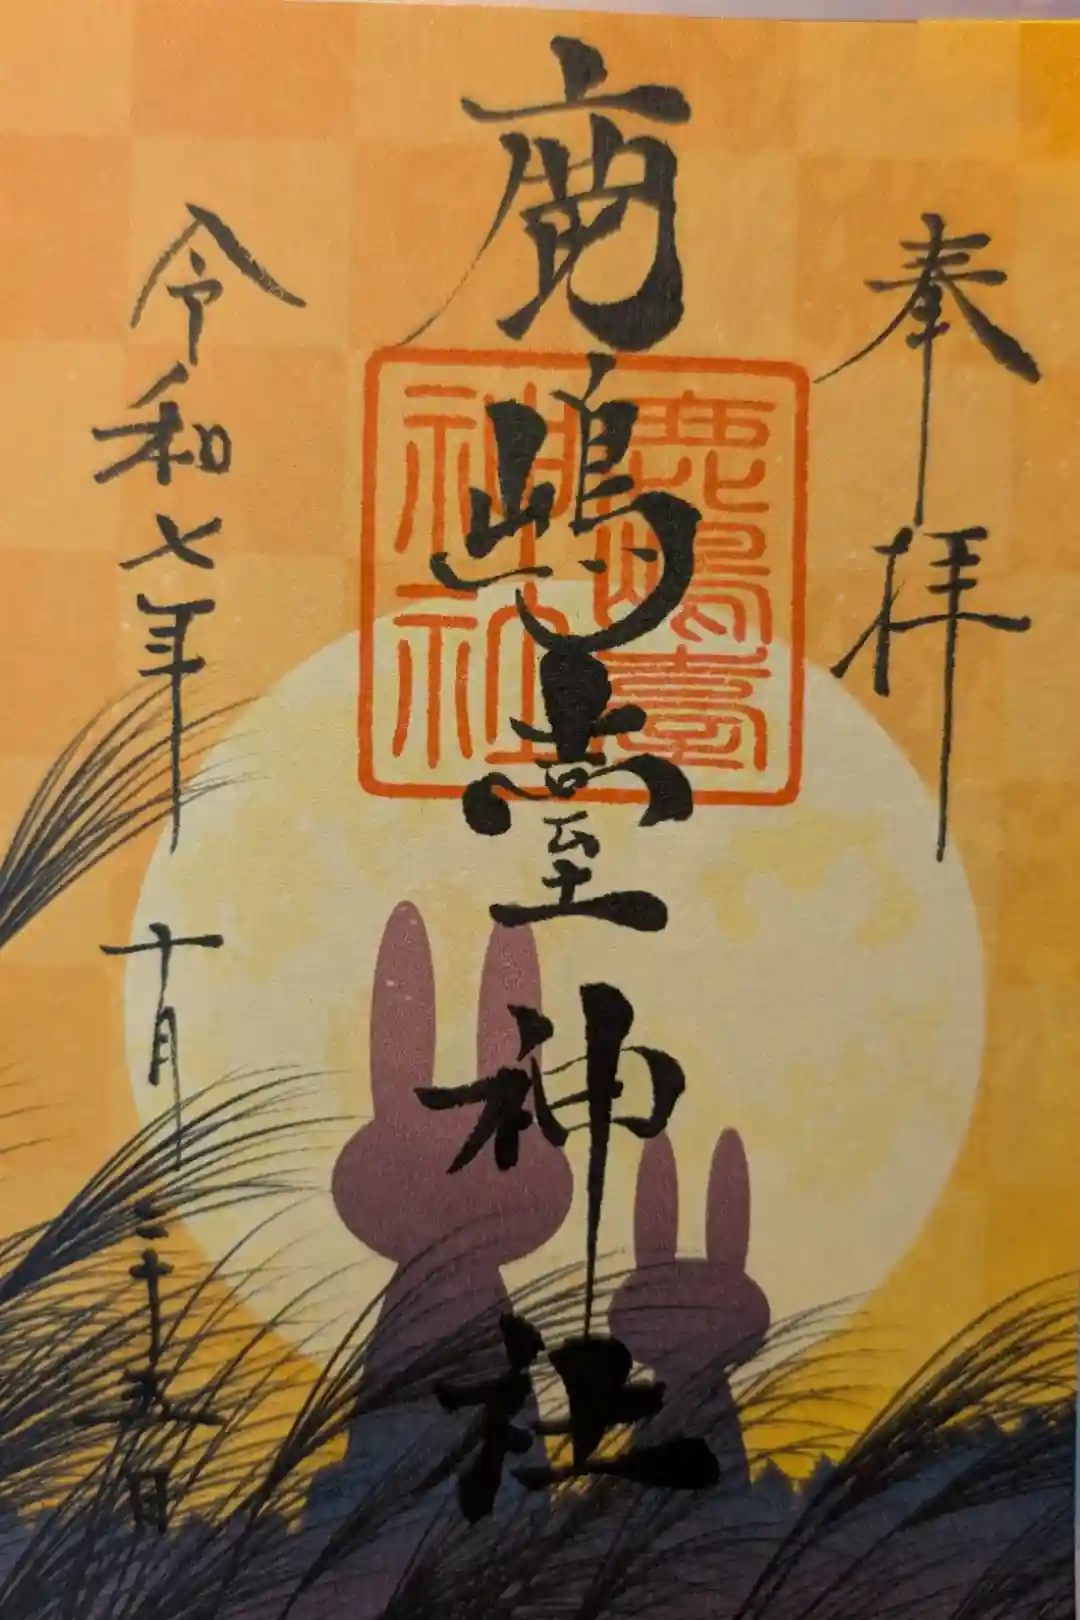 奉拝
鹿嶋臺神社
鹿嶋臺
神社
令和七年十月二十五日